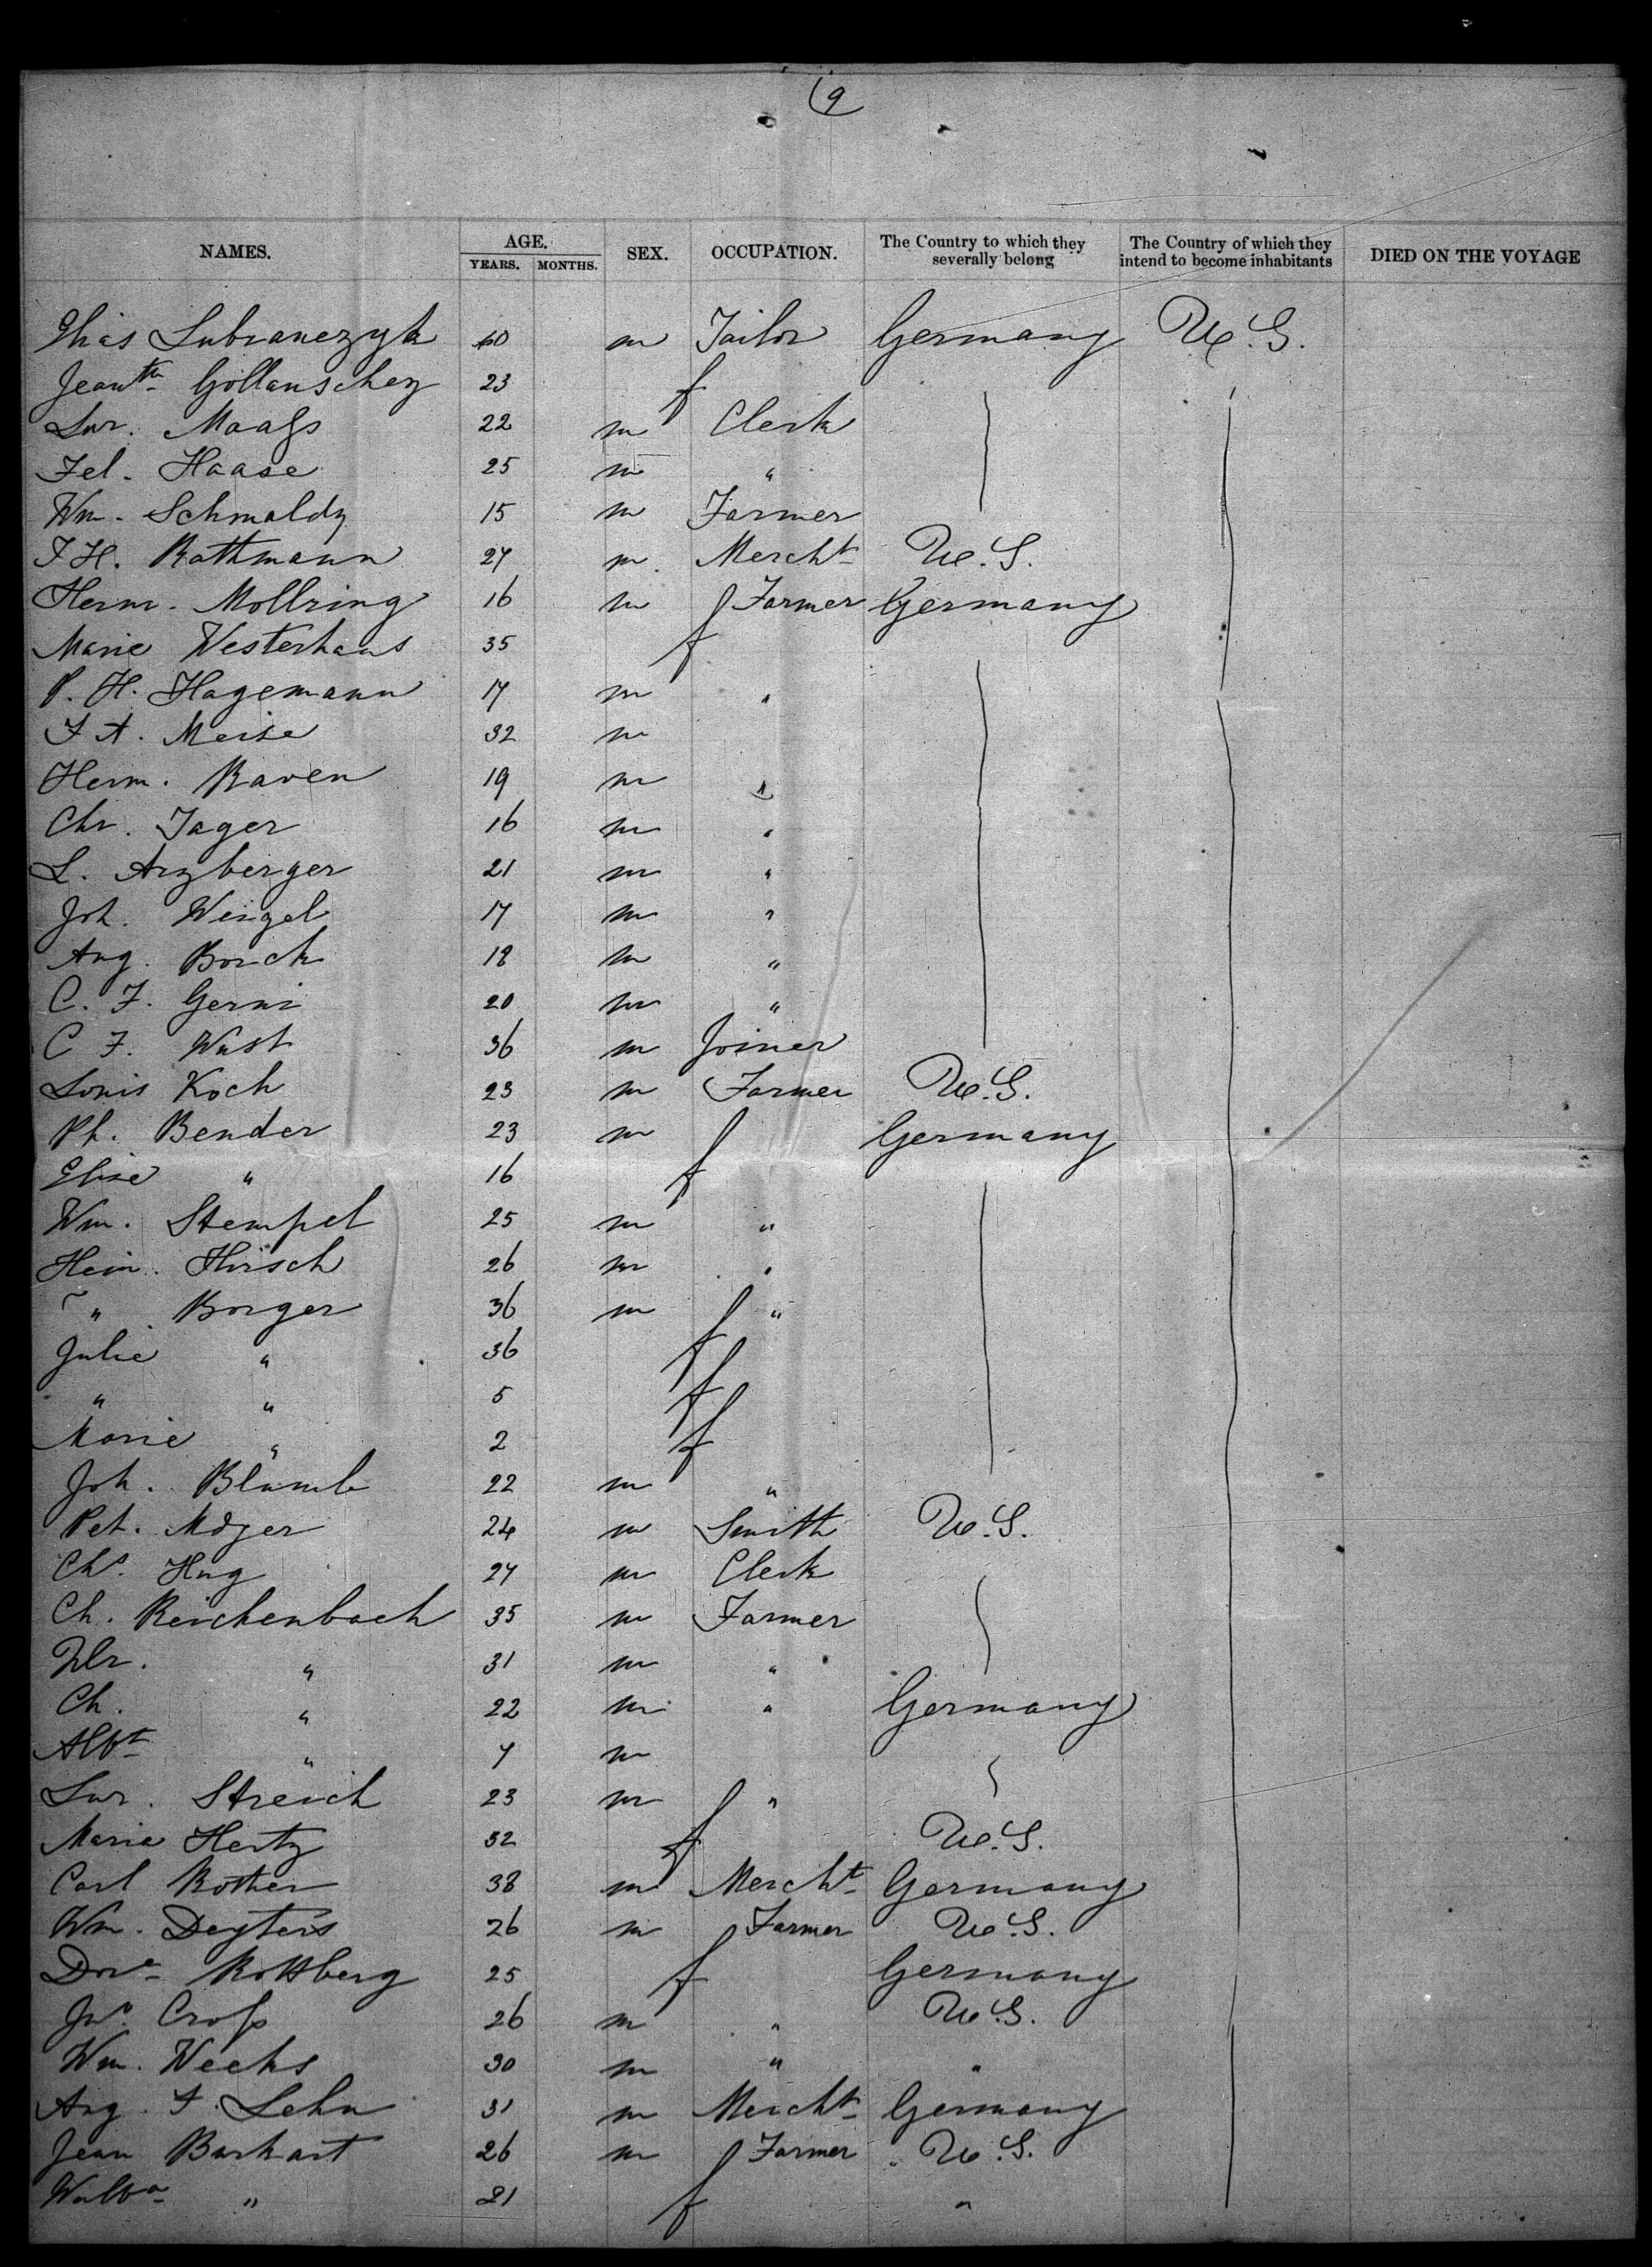 9
NAMES. AGE. SEX. OCCUPATION. The Country to which they severally belong The Country of which they intend to become inhabitants DIED ON THE VOYAGE
YEARS. MONTHS.
Elias Lubranczyk 40 m Tailor Germany U.S.
Jeantte Gollanschez 23 f
Lur. Maass 22 m Clerk
Fel. Haase 25 m "
Wm. Schmaldz 15 m Farmer
F H. Rathmann 27 m Mercht U.S.
Herm. Mollring 16 m Farmer Germany
Marie Westerhaus 35 f
P. H. Hagemann 17 m "
F A. Meise 32 m
Herm. Raven 19 m "
Chr. Jager 16 m "
L. Arzberger 21 m "
Joh. Weigel 17 m "
Aug. Borck 18 m "
C. F. Gerni 20 m "
C F. Wust 36 m Joiner
Louis Koch 23 m Farmer U.S.
Ph. Bender 23 m Germany
Elise " 16 f
Wm. Stempel 25 m "
Hein. Hirsch 26 m "
" Borger 36 m "
Julie " 36 f
" " 5 f
Marie " 2 f
Joh. Blumb 22 m "
Pet. Moger 24 m Smith U.S.
Chs. Hug 27 m Clerk
Ch. Reichenbach 35 m Farmer
Ulr. " 31 m "
Ch. " 22 m " Germany
Albt " 7 m
Lur. Streich 23 m "
Marie Hertz 32 f U.S.
Carl Rother 38 m Mercht Germany
Wm. Deyters 26 m Farmer U.S.
Dore Rottberg 25 f Germany
Jno. Cross 26 m " U.S.
Wm. Weeks 30 m " "
Aug. F. Lehn 31 m Mercht Germany
Jean Burkart 26 m Farmer U.S.
Walba " 21 f "